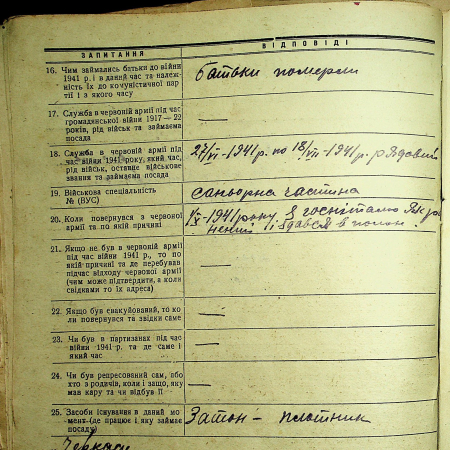 ЗАПИТАННЯ ВІДПОВІДІ
16. Чим займались батьки до війни
1941 р. і в даний час та належ-
ність їх до комуністичної пар-
тії і з якого часу
батьки померли
17. Служба в червоній армії під час
громадянської війни 1917—22
років, рід військ та займаєма
посада
—
18. Служба в червоній армії під
час війни 1941 року, який час,
рід військ, останнє військове
звання та займаєма посада
27/VI-1941 р. по 18/VII-1941 р. рядовий
19. Військова спеціальність
№ (ВУС)
саньорна частина
20. Коли повернувся з червоної
армії та по якій причині
-1941 року з госпіталю Як
ненний і здався в полон.
21. Якщо не був в червоній армії
під час війни 1941 р., то по
якій причині та де перебував
підчас відходу червоної армії
(чим може підтвердити, а коли
свідками то їх адреса)
—
22. Якщо був евакуйований, то ко-
ли повернувся та звідки саме
—
23. Чи був в партизанах під час
війни 1941 р. та де саме і
який час
—
24. Чи був репресований сам, або
хто з родичів, коли і защо, яку
мав кару та чи відбув її
—
25. Засоби існування в даний мо-
мент (де працює і яку займає
посаду)
Затон — плотник
Черкаси